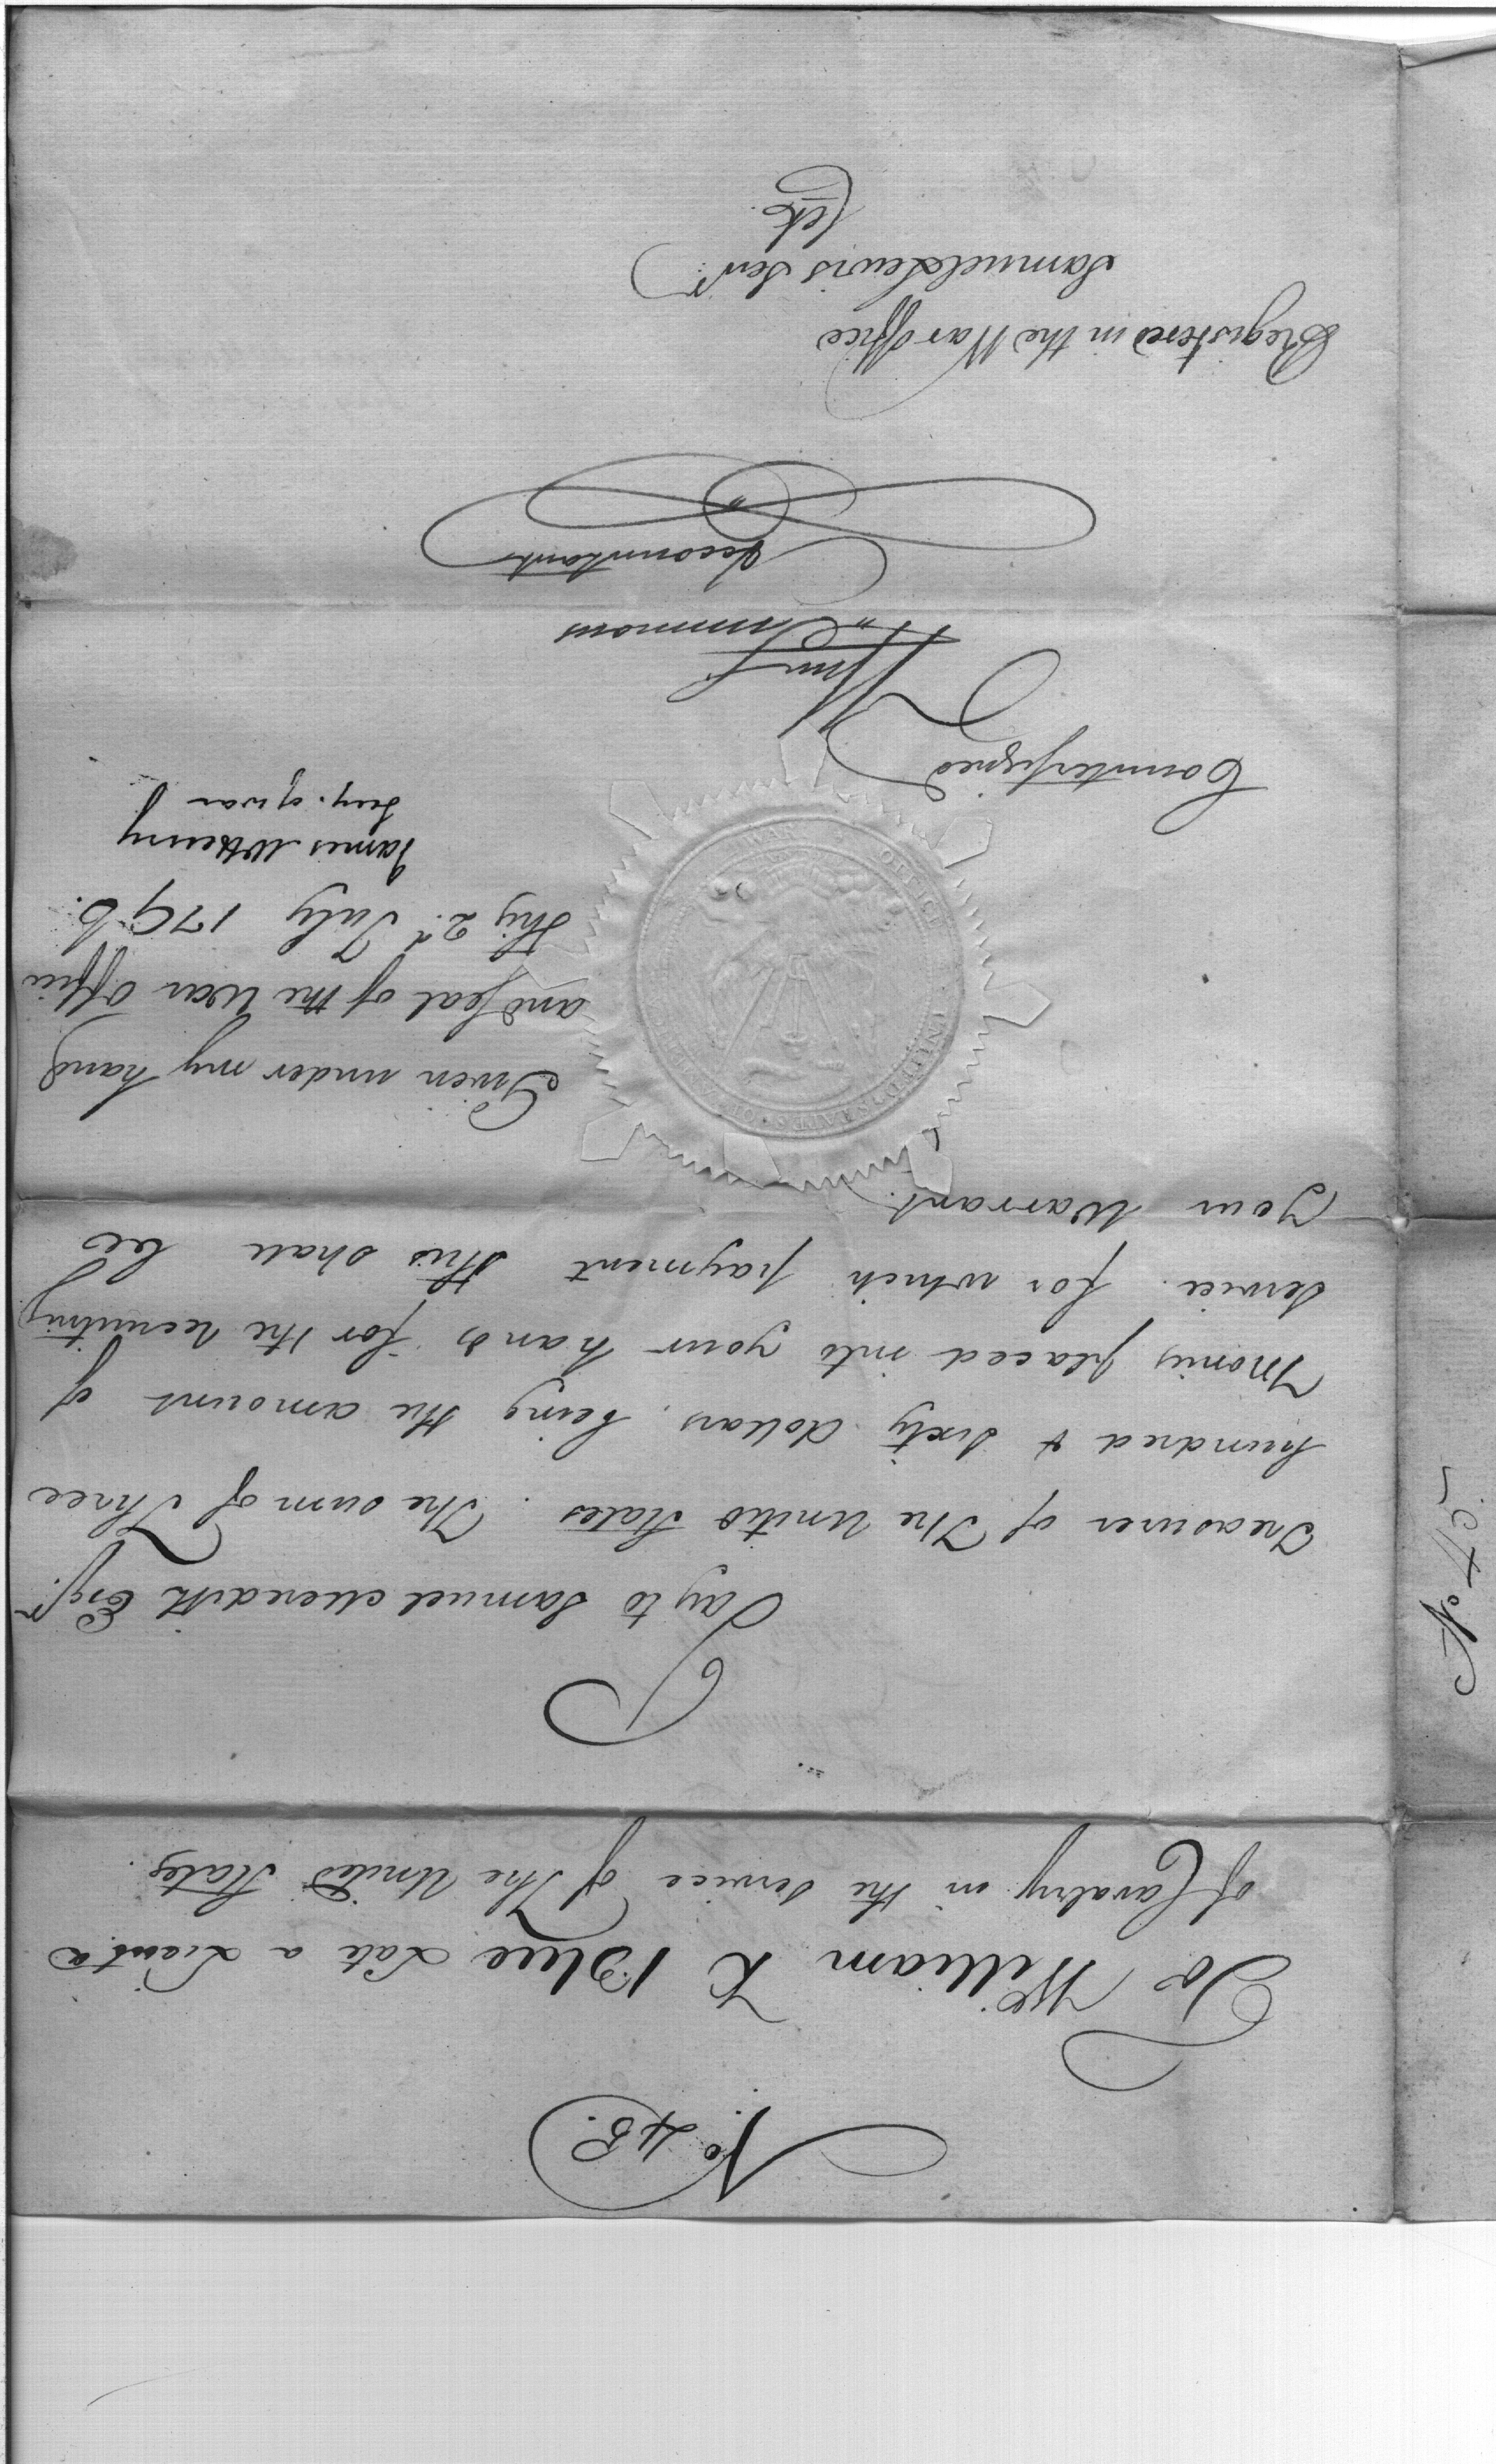 No 45.
To William K Blue Late a Lieut
of Cavalry in the service of The United States.
Pay to Samuel Meredith Esqr.
Treasurer of The United States. The sum of Three
hundred & Sixty dollars. being the amount of
Monies placed into your hands for the recruiting
service. for which payment this shall be
your Warrant.
Given under my hand
and seal of the War Office
this 2d. July 1796.
James McHenry
Secy. of war
WAR OFFICE
UNITED STATES
Countersigned
Wm. Simmons
Accountant
Registered in the War office
Samuel Lewis Senr.
Clk.
No